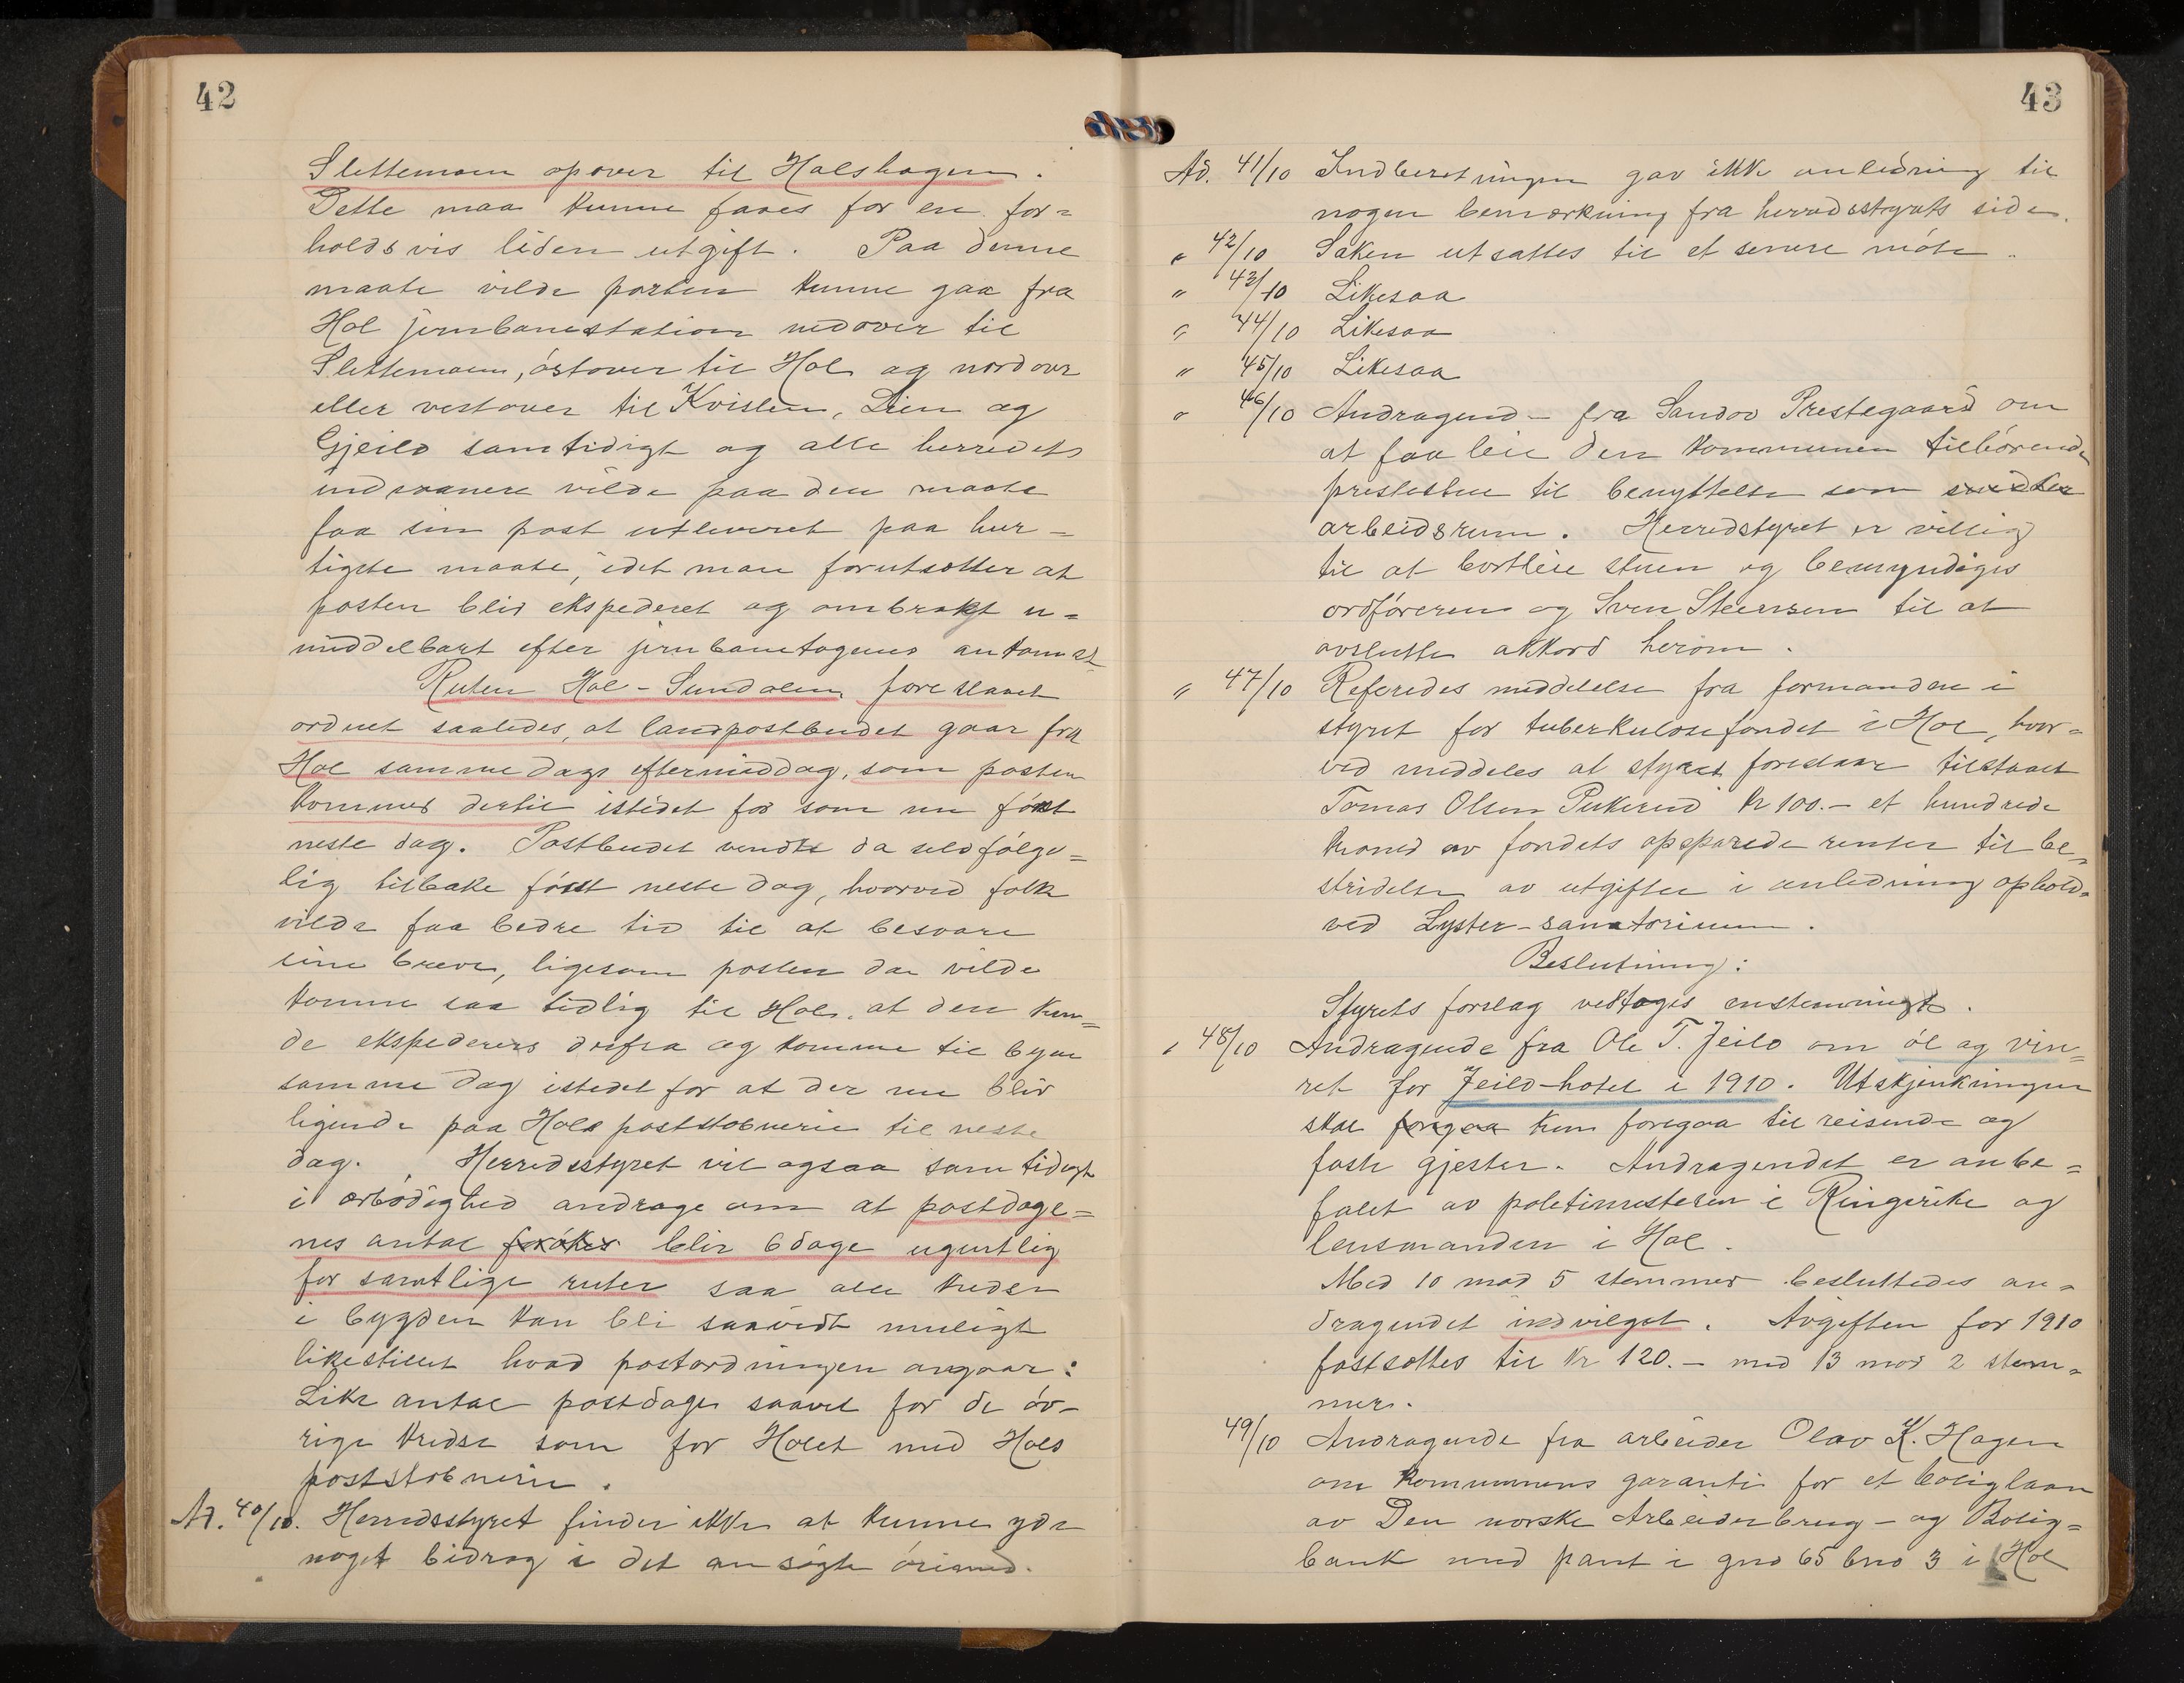 42
Slettemoen opover til Halshagen.
Dette maa kunne faaes for en for=
holdsvis liden utgift. Paa denne
maate vilde posten kunne gaa fra
Hol jernbanestation nedover til
Slettemoen, østover til Hol og nordover
eller vestover til Kvislen, Lien og
Gjeilo samtidigt og alle herredets
indvaanere vilde paa den maate
faa sin post utleveret paa hur=
tigste maate, idet man forutsætter at
posten blir ekspederet og ombrakt u=
middelbart efter jernbanetogenes ankomst
Ruten Hol-Sundalen foreslaaes
ordnet saaledes, at landpostbudet gaar fra
Hol samme dags eftermiddag, som posten
kommer dertil istedet for som nu først
neste dag. Postbudet vendte da selvfølge=
lig tilbake først neste dag, hvorved folk
vilde faa bedre tid til at besvare
sine breve, ligesom posten da vilde
komme saa tidlig til Hol, at den kun=
de ekspederes derfra og komme til byen
samme dag istedet for at der nu blir
liggende paa Hols poststobneri til neste
dag. Herredsstyret vil ogsaa samtidigt
i ærbødighed andrage om at postdage=
nes antal forøkes blir 6 dage ugentlig
for samtlige ruter saa alle kredser
i bygden kan bli saavidt muligt
likestillet hvad postordningen angaar:
Like antal postdage saavel for de øv-
rige kredse som for Holet med Hols
poststobneri.
Ad. 40/10. Herredsstyret finder ikke at kunne yde
noget bidrag i det ansøgte øiemed.
43
Ad. 41/10 Indberetningen gav ikke anledning til
nogen bemærkning fra herredsstyrets side.
" 42/10 Saken utsattes til et senere møte.
" 43/10 Likesaa
" 44/10 Likesaa
" 45/10 Likesaa
" 46/10 Andragende fra Sander Prestegaard om
at faa leie den kommunen tilhørende
prestestue til benyttelse som
arbeidsrum. Herredstyret er villig
til at bortleie stuen og bemyndiges
ordføreren og Sven Steensen til at
avslutte akkord herom.
" 47/10 Referedes meddelelse fra formanden i
styret for tuberkulosefondet i Hol, hvor=
ved meddeles at styret foreslaar tilstaaet
Tomas Olsen Pukerud kr 100.- et hundrede
kroner av fondets opsparede renter til be=
stridelse av utgifter i anledning ophold
ved Lyster-sanatorium.
Beslutning:
Styrets forslag vedtages enstemmigt.
" 48/10 Andragende fra Ole T. Jeilo om øl og vin=
ret for Jeilo-hotel i 1910. Utskjenkningen
skal foregaa kun foregaa til reisende og
faste gjester. Andragendet er anbe=
falet av politimesteren i Ringerike og
lensmanden i Hol.
Med 10 mod 5 stemmer besluttedes an=
dragendet indvilget. Avgiften for 1910
fastsattes til kr 120.- med 13 mod 2 stem=
mer.
49/10 Andragende fra arbeider Olav K. Hagen
om kommunens garanti for et boliglaan
av Den norske Arbeiderbrug- og Bolig=
bank med pant i gno 65 bno 3 i Hol